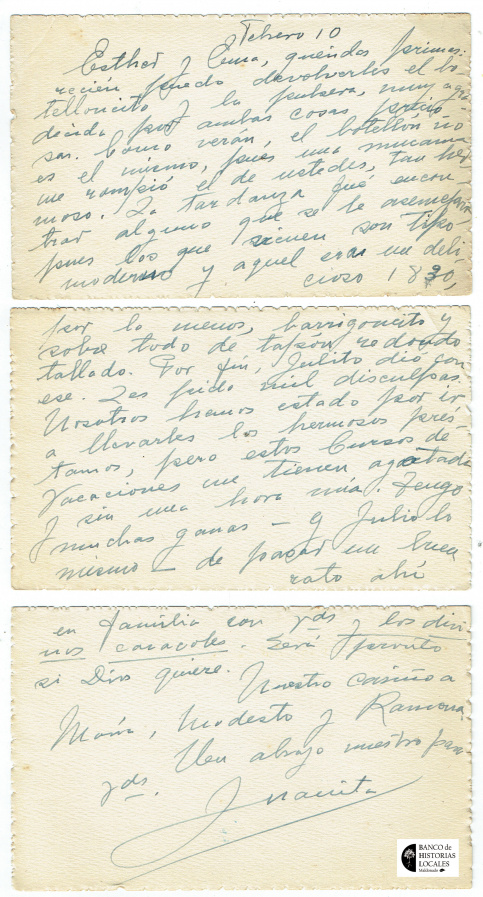 Febrero 10
Esther y Ema, queridas primas:
recién puedo devolverles el bo-
telloncito y la pulsera, muy agra-
decida por ambas cosas precio-
sas. Como verán, el botellón no
es el mismo, pues una mucama
me rompió el de ustedes, tan her
moso. La tardanza fué encon
trar alguno que se le asemejara
pues los que vienen son tipo
moderno y aquel era un deli
cioso 1830,
por lo menos, barrigoncito y
sobre todo de tapón redondo
tallado. Por fin, Julito dió con
ese. Les pido mil disculpas.
Nosotros hemos estado por ir
a llevarles los hermosos prés-
tamos, pero estos Cursos de
Vacaciones me tienen agotada
y sin una hora mía. Tengo
muchas ganas – y Julio lo
mismo – de pasar un buen
rato ahí
en familia con Vds y los divi-
nos caracoles. Será pronto
si Dios quiere.
Nuestro cariño a
María, Modesto y Ramona
Un abrazo nuestro para
Vds.
Juanita
BANCO de
HISTORIAS
LOCALES
Maldonado